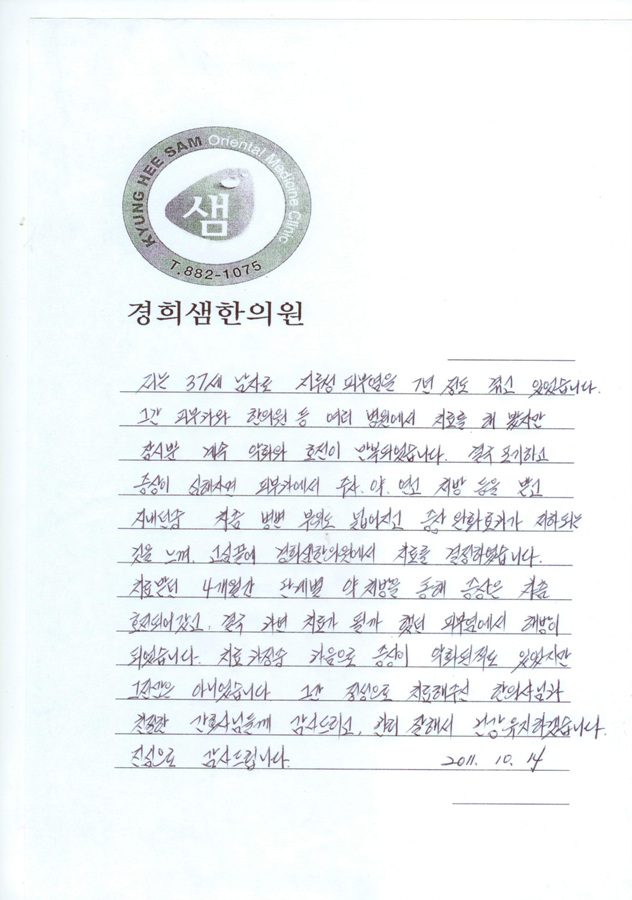 KYUNG HEE SAM Oriental Medicine Clinic
샘
T.882-1075
경희샘한의원
저는 37세 남자로 지루성 피부염을 7년 정도 겪고 있었습니다.
그간 피부과와 한의원 등 여러 병원에서 치료를 해 봤지만
잠시뿐 계속 악화와 호전이 반복되었습니다. 결국 포기하고
증상이 심해지면 피부과에서 주사. 약. 연고 처방 등을 받고
지내던중 차츰 병변 부위도 넓어지고 증상 완화효과가 저하되는
것을 느껴, 고심끝에 경희샘한의원에서 치료를 결정하였습니다.
치료받던 4개월간 단계별 약 처방을 통해 증상은 차츰
호전되어갔고, 결국 과연 치료가 될까 했던 피부염에서 해방이
되었습니다. 치료 과정中 처음으로 증상이 악화된적도 있었지만
아니었습니다 그간 정성으로 치료해주신 한의사님과
친절한 간호사님들께 감사드리고, 관리 잘해서 건강유지하겠습니다.
진심으로 감사드립니다. 2011. 10. 14